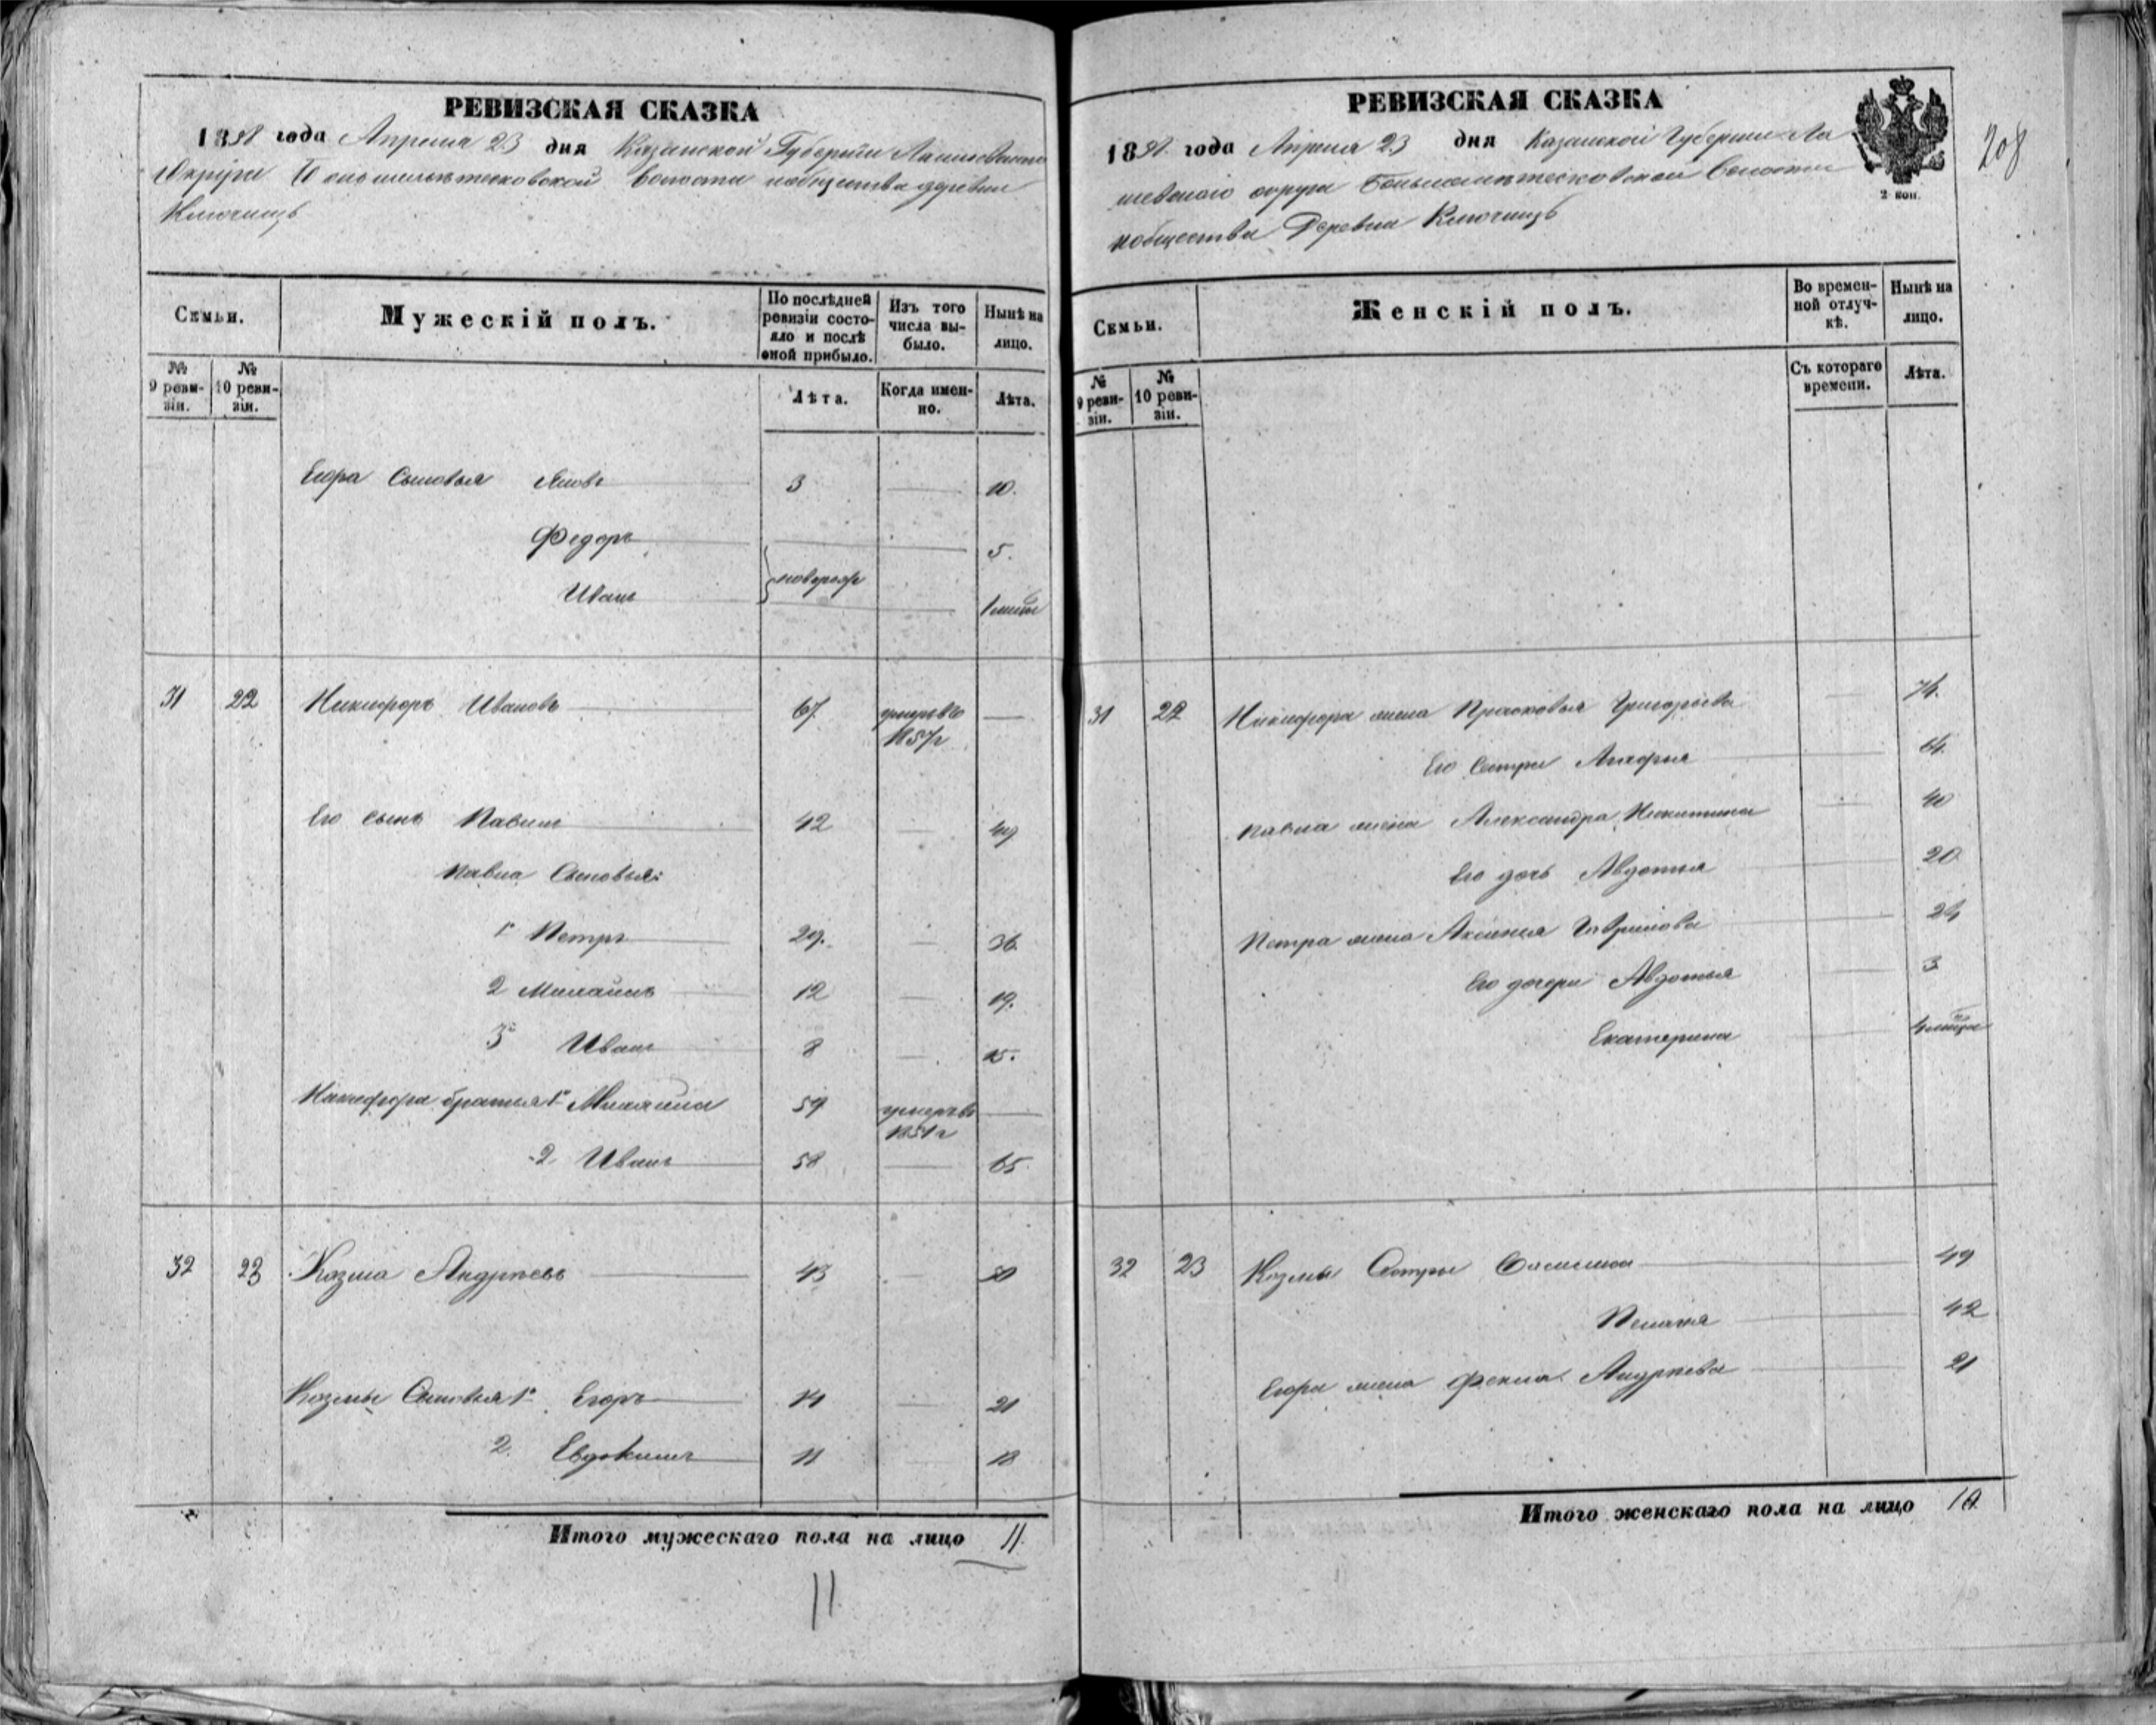 РЕВИЗСКАЯ СКАЗКА
1858 года Апреля 23 дня Казанской Губернии Лаишевского
Округа волости общества деревни
Ключищъ
Семьи.
Мужескій полъ.
По послѣдней ревизіи состояло и послѣ оной прибыло.
Изъ того числа выбыло.
Нынѣ на лицо.
№ 9 ревизіи.
№ 10 ревизіи.
Лѣта.
Когда именно.
Лѣта.
Егора Сыновья Яковъ 3 10.
Федоръ 5.
Иванъ
31 22 Никифоръ Ивановъ 67. умеръ въ 1857г
Его сынъ Павелъ 42 49
Павла Сыновья:
1й Петръ 29. 36.
2 Михайлъ 12 19.
3й Иванъ 8 15.
Никифора братья 1й Михайла 59 умеръ въ 1851г
2. Иванъ 58 65.
32 23 Козма Андреевъ 43 50
Козмы Сыновья 1й Егоръ 14 21
2. Евдокимъ 11 18
Итого мужескаго пола на лицо 11.
11
РЕВИЗСКАЯ СКАЗКА
1858 года Апреля 23 дня Казанской Губернии Ла
ишевского округа волости
общества Деревни Ключищъ
2 коп.
208
Семьи.
Женскій полъ.
Во временной отлучкѣ.
Нынѣ на лицо.
№ 9 ревизіи.
№ 10 ревизіи.
Съ котораго времени.
Лѣта.
31 22 Никифора жена Прасковья Григорьева 74.
Его Сестра 64.
Павла жена Александра Никитина 40
Его дочь Авдотья 20
Петра жена Аксинья Гаврилова 24
Его дочери Авдотья 3
Екатерина
32 23 Козмы Сестры 49
Пелагея 42
Егора жена Фекла Андреева 21
Итого женскаго пола на лицо 10